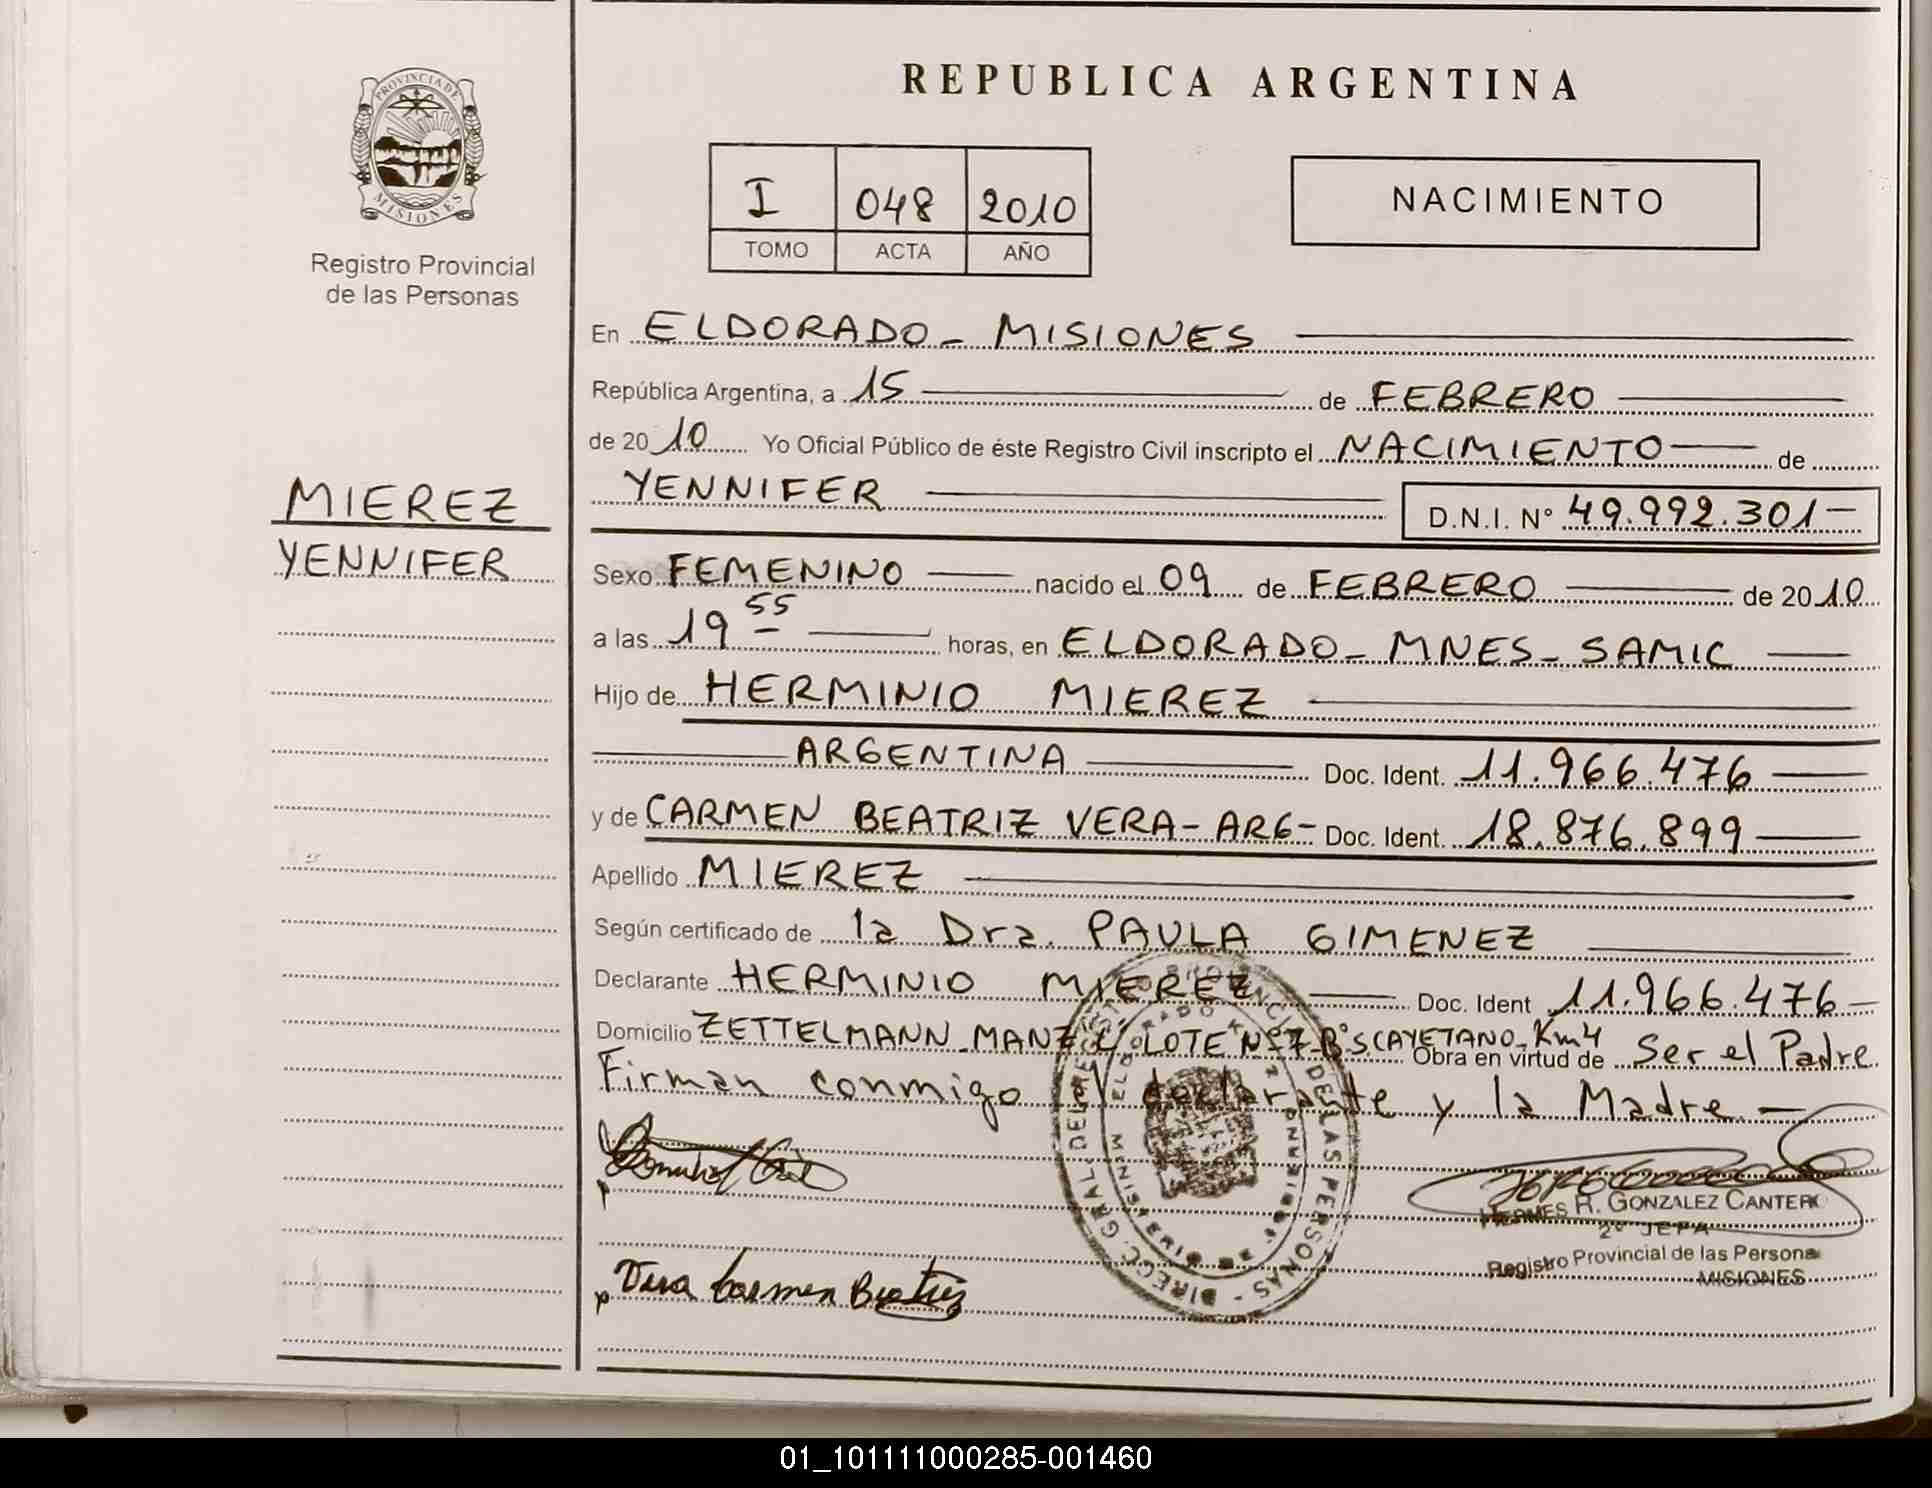 PROVINCIA DE
MISIONES
Registro Provincial
de las Personas
MIEREZ
YENNIFER
REPUBLICA ARGENTINA
I 048 2010
TOMO ACTA AÑO
NACIMIENTO
En ELDORADO - MISIONES
República Argentina, a 15 de FEBRERO
de 2010 Yo Oficial Público de éste Registro Civil inscripto el NACIMIENTO de
YENNIFER D.N.I. Nº 49.992.301-
Sexo FEMENINO nacido el 09 de FEBRERO de 2010
a las 19 55 horas, en ELDORADO - MNES - SAMIC
Hijo de HERMINIO MIEREZ
ARGENTINA Doc. Ident. 11.966.476
y de CARMEN BEATRIZ VERA - ARG - Doc. Ident. 18.876.899
Apellido MIEREZ
Según certificado de la Dra. PAULA GIMENEZ
Declarante HERMINIO MIEREZ Doc. Ident 11.966.476
Domicilio ZETTELMANN - MANZ LOTE Nº 7 - Bº S CAYETANO - Km 4 Obra en virtud de Ser el Padre.
Firman conmigo el declarante y la Madre. -
HERMES R. GONZALEZ CANTERO
2º JEFA
Registro Provincial de las Persona
MISIONES
Vera Carmen Beatriz
DIRECC. GRAL. DEL REGIST. PROVINC. DE LAS PERSONAS
ELDORADO
01_101111000285-001460